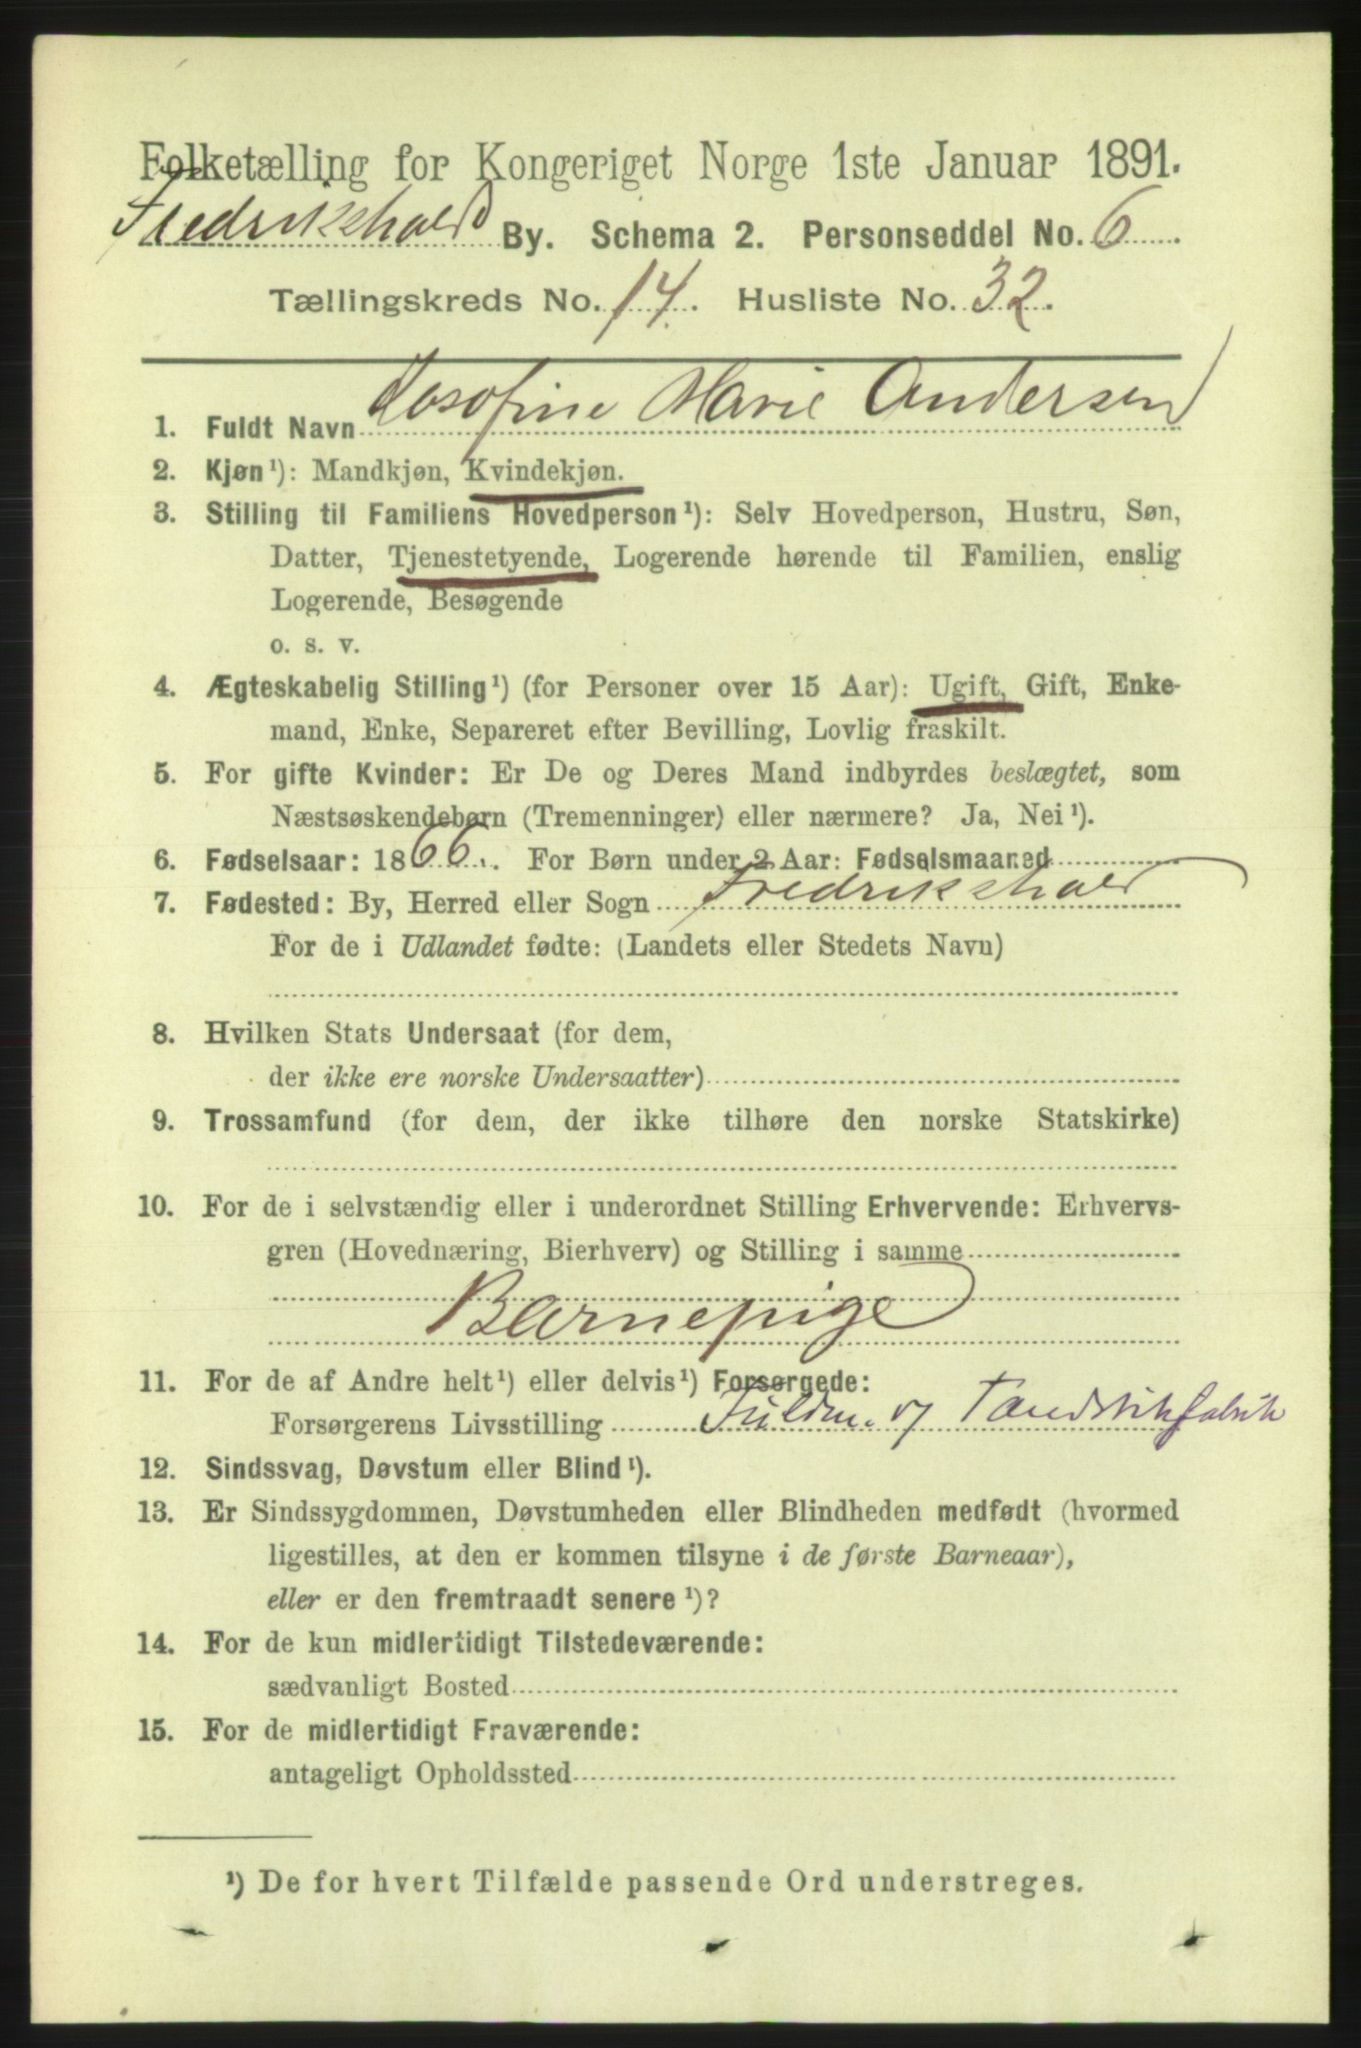 Folketælling for Kongeriget Norge 1ste Januar 1891.
Fredrikshald By. Schema 2. Personseddel No. 6
Tællingskreds No. 14. Husliste No. 32.
1. Fuldt Navn Josofine Marie Andersen
2. Kjøn¹): Mandkjøn, Kvindekjøn.
3. Stilling til Familiens Hovedperson¹): Selv Hovedperson, Hustru, Søn,
Datter, Tjenestetyende, Logerende hørende til Familien, enslig
Logerende, Besøgende
o. s. v.
4. Ægteskabelig Stilling¹) (for Personer over 15 Aar): Ugift, Gift, Enke-
mand, Enke, Separeret efter Bevilling, Lovlig fraskilt.
5. For gifte Kvinder: Er De og Deres Mand indbyrdes beslægtet, som
Næstsøskendebørn (Tremenninger) eller nærmere? Ja, Nei¹).
6. Fødselsaar: 1866. For Børn under 2 Aar: Fødselsmaaned
7. Fødested: By, Herred eller Sogn Fredrikshald
For de i Udlandet fødte: (Landets eller Stedets Navn)
8. Hvilken Stats Undersaat (for dem,
der ikke ere norske Undersaatter)
9. Trossamfund (for dem, der ikke tilhøre den norske Statskirke)
10. For de i selvstændig eller i underordnet Stilling Erhvervende: Erhvervs-
gren (Hovednæring, Bierhverv) og Stilling i samme
Barnepige
11. For de af Andre helt¹) eller delvis¹) Forsørgede:
Forsørgerens Livsstilling Fuldm. v Tændstikfabrik
12. Sindssvag, Døvstum eller Blind¹).
13. Er Sindssygdommen, Døvstumheden eller Blindheden medfødt (hvormed
ligestilles, at den er kommen tilsyne i de første Barneaar),
eller er den fremtraadt senere¹)?
14. For de kun midlertidigt Tilstedeværende:
sædvanligt Bosted
15. For de midlertidigt Fraværende:
antageligt Opholdssted
¹) De for hvert Tilfælde passende Ord understreges.